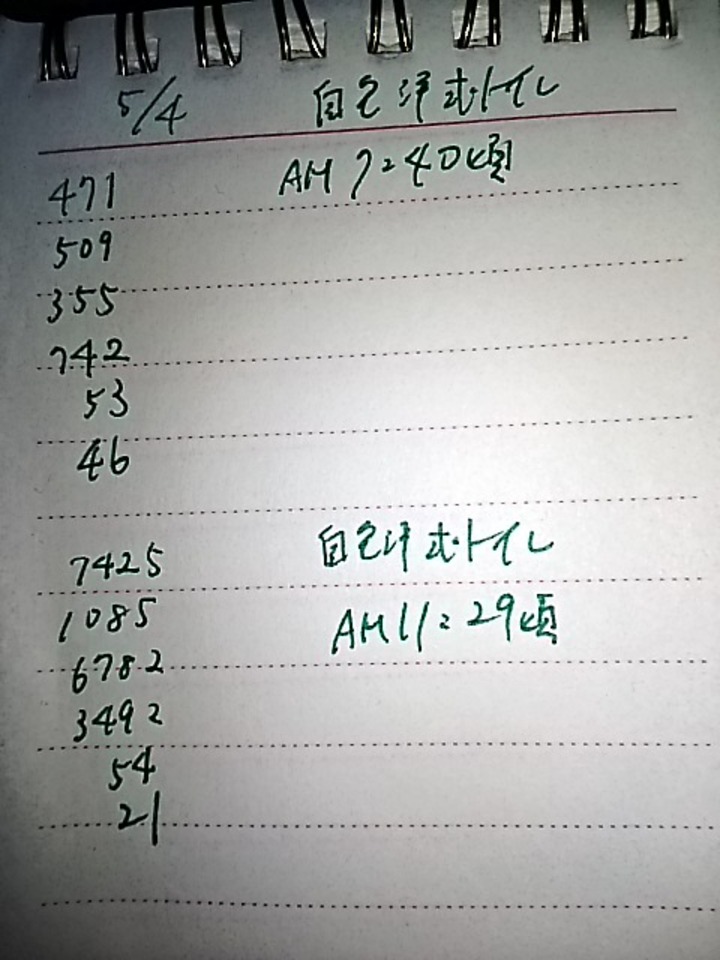 5/4 自宅洋式トイレ
471 AM 7:40頃
509
355
742
53
46
7425 自宅洋式トイレ
1085 AM 11:29頃
6782
3492
54
21